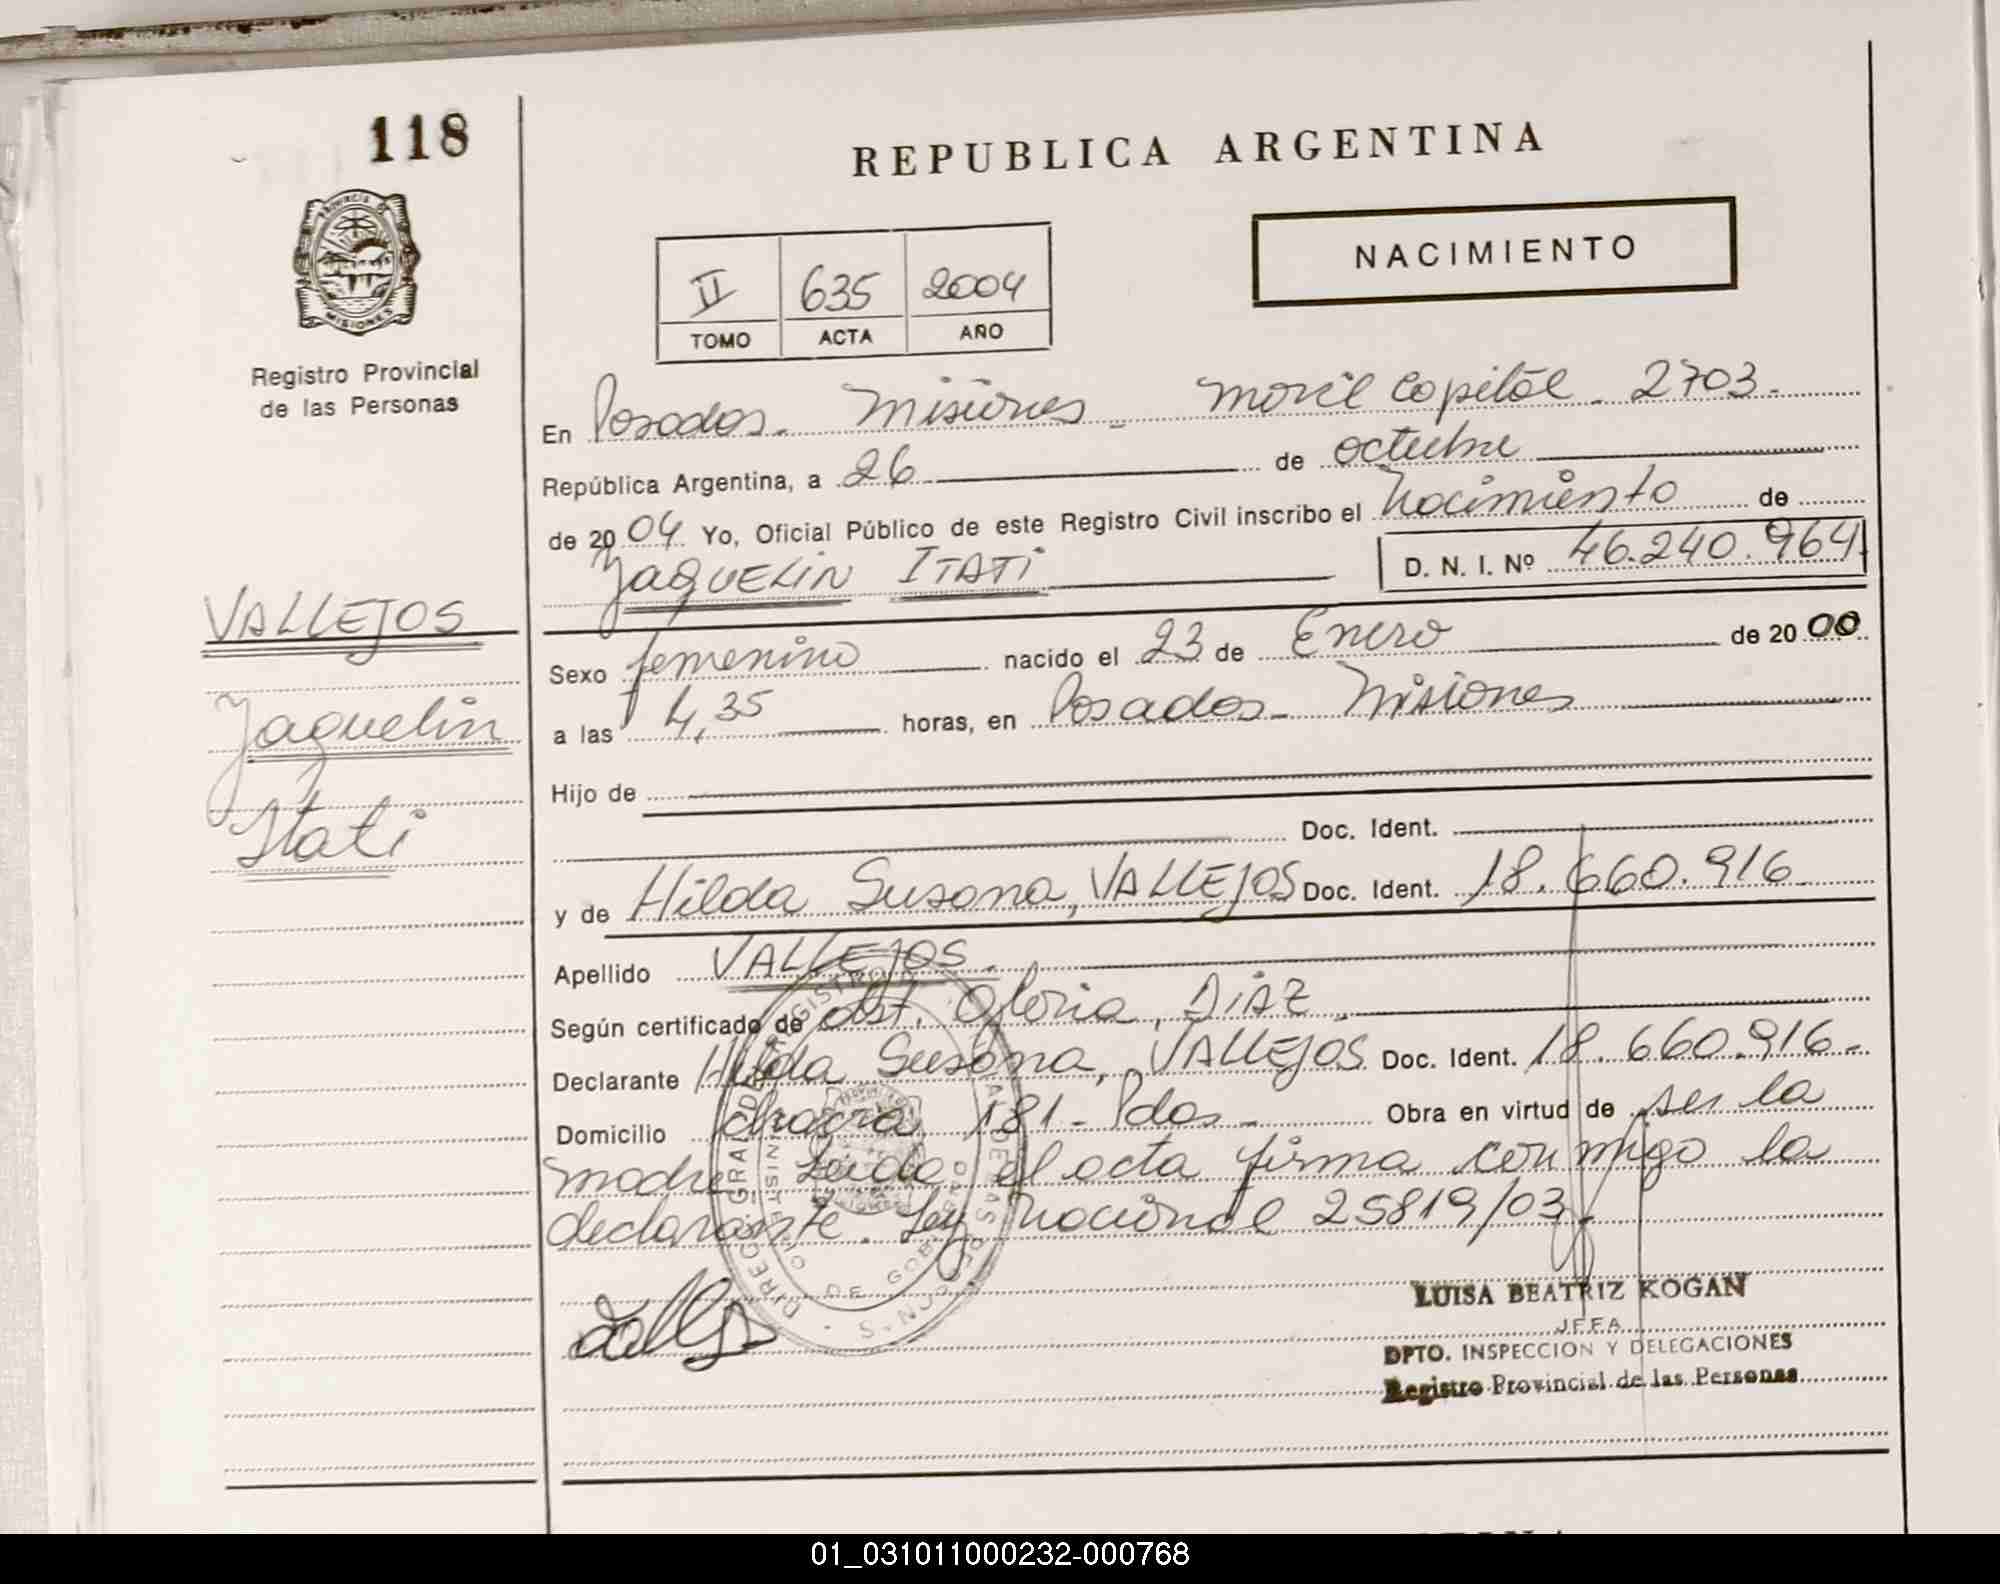 118
REPUBLICA ARGENTINA
NACIMIENTO
II 635 2004
TOMO ACTA AÑO
PROVINCIA DE
MISIONES
Registro Provincial
de las Personas
En Posadas - Misiones - Movil Capital - 2703 -
República Argentina, a 26 de octubre
de 2004 Yo, Oficial Público de este Registro Civil inscribo el Nacimiento de
Jaquelin Itati D. N. I. Nº 46.240.964
VALLEJOS
Jaquelin
Itati
Sexo femenino nacido el 23 de Enero de 2000
a las 4,35 horas, en Posadas - Misiones
Hijo de
Doc. Ident.
y de Hilda Susana, VALLEJOS Doc. Ident. 18.660.916
Apellido VALLEJOS.
Según certificado de obst. Gloria, DIAZ.
Declarante Hilda Susana, VALLEJOS Doc. Ident. 18.660.916 -
Domicilio chacra 181 - Pdas - Obra en virtud de ser la
madre Leida el acta firma conmigo la
declarante. Ley nacional 25819/03.
LUISA BEATRIZ KOGAN
JEFA
DPTO. INSPECCION Y DELEGACIONES
Registro Provincial de las Personas
01_031011000232-000768